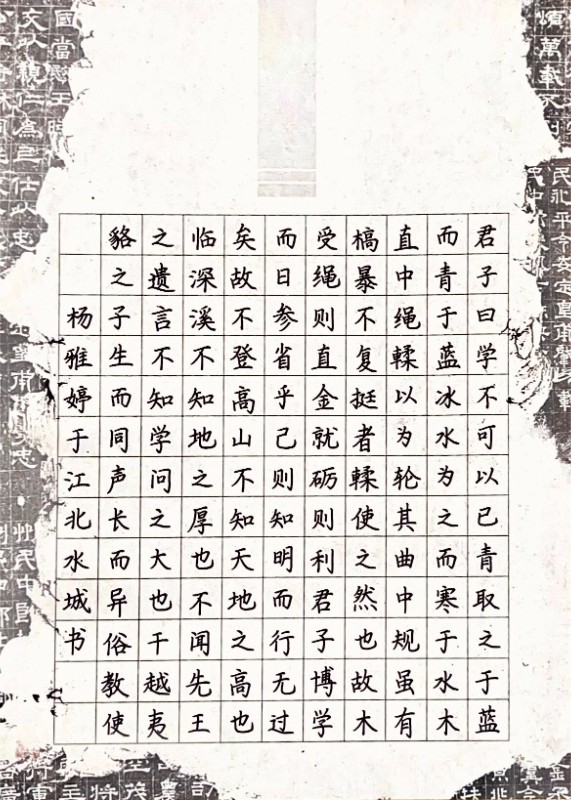 君子曰学不可以已青取之于蓝
而青于蓝冰水为之而寒于水木
直中绳輮以为轮其曲中规虽有
槁暴不复挺者輮使之然也故木
受绳则直金就砺则利君子博学
而日参省乎己则知明而行无过
矣故不登高山不知天地之高也
临深溪不知地之厚也不闻先王
之遗言不知学问之大也干越夷
貉之子生而同声长而异俗教使
杨雅婷于江北水城书